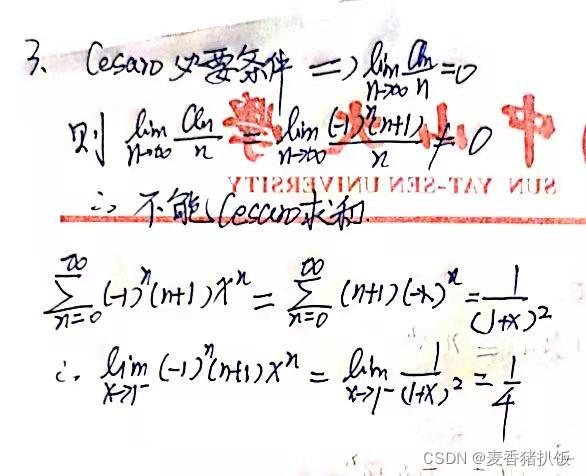 3、Cesaro 必要条件 => lim_{n→∞} a_n/n = 0
则 lim_{n→∞} a_n/n = lim_{n→∞} (-1)^n(n+1)/n ≠ 0
中山大學
SUN YAT-SEN UNIVERSITY
∴ 不能Cesaro求和.
∑_{n=0}^{∞} (-1)^n(n+1)x^n = ∑_{n=0}^{∞} (n+1)(-x)^n = 1/(1+x)^2
∴ lim_{x→1^-} (-1)^n(n+1)x^n = lim_{x→1^-} 1/(1+x)^2 = 1/4
CSDN @麦香猪扒饭